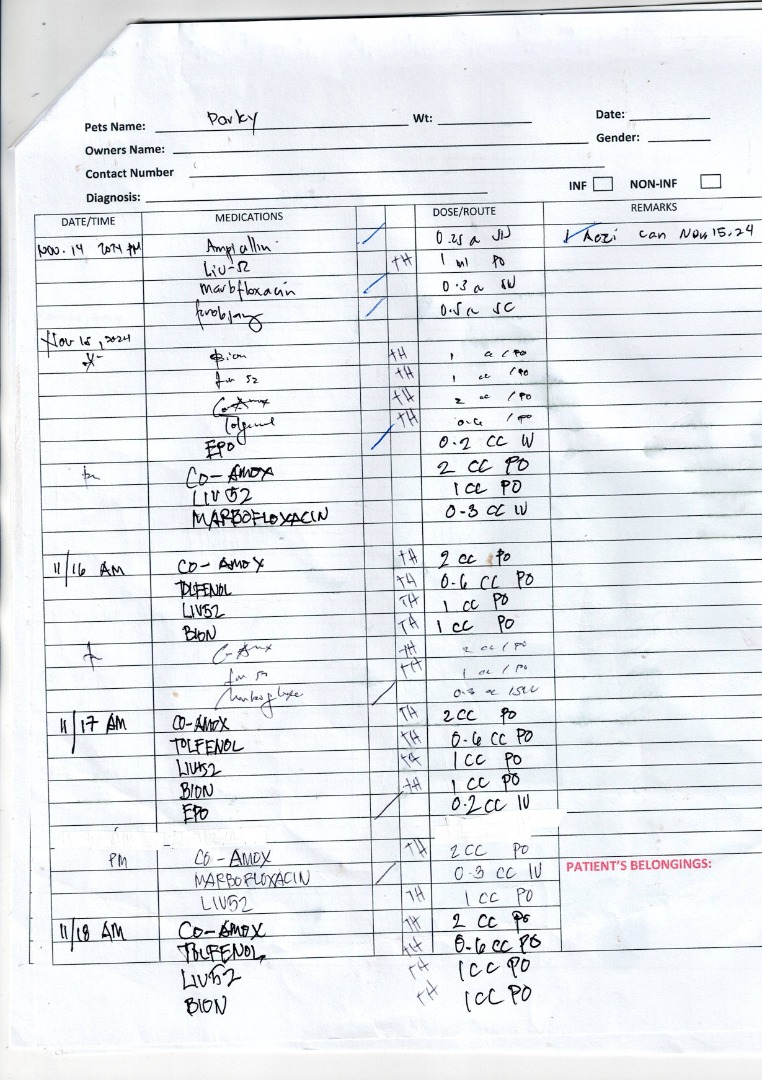 Pets Name: Parky Wt: Date:
Owners Name: Gender:
Contact Number
Diagnosis: INF NON-INF
DATE/TIME MEDICATIONS DOSE/ROUTE REMARKS
Nov. 14 2024 PM Ampicillin 0.25 Nov 15, 24
Liv-52 TH 1 ml PO
Marbofloxacin 0.3
0.5 SC
Nov 15, 2024
Bion TH 1 cc / PO
Liv 52 TH 1 cc / PO
Co-Amox TH 2 cc / PO
TH / PO
EPO 0.2 CC IV
CO-AMOX 2 CC PO
LIV 52 1 CC PO
MARBOFLOXACIN 0.3 CC IV
11/16 AM CO-AMOX TH 2 cc PO
TOLFENOL TH 0.6 CC PO
LIV52 TH 1 CC PO
BION TH 1 CC PO
Co-Amox TH 2 cc / PO
Liv 52 TH 1 cc / PO
0.3 cc
11/17 AM CO-AMOX TH 2 CC PO
TOLFENOL TH 0.6 CC PO
LIV52 TH 1 CC PO
BION TH 1 CC PO
EPO 0.2 CC IV
PM CO-AMOX TH 2 CC PO
MARBOFLOXACIN 0.3 CC IV
PATIENT'S BELONGINGS:
LIV52 TH 1 CC PO
11/18 AM CO-AMOX TH 2 CC PO
TOLFENOL TH 0.6 CC PO
LIV52 TH 1 CC PO
BION TH 1 CC PO